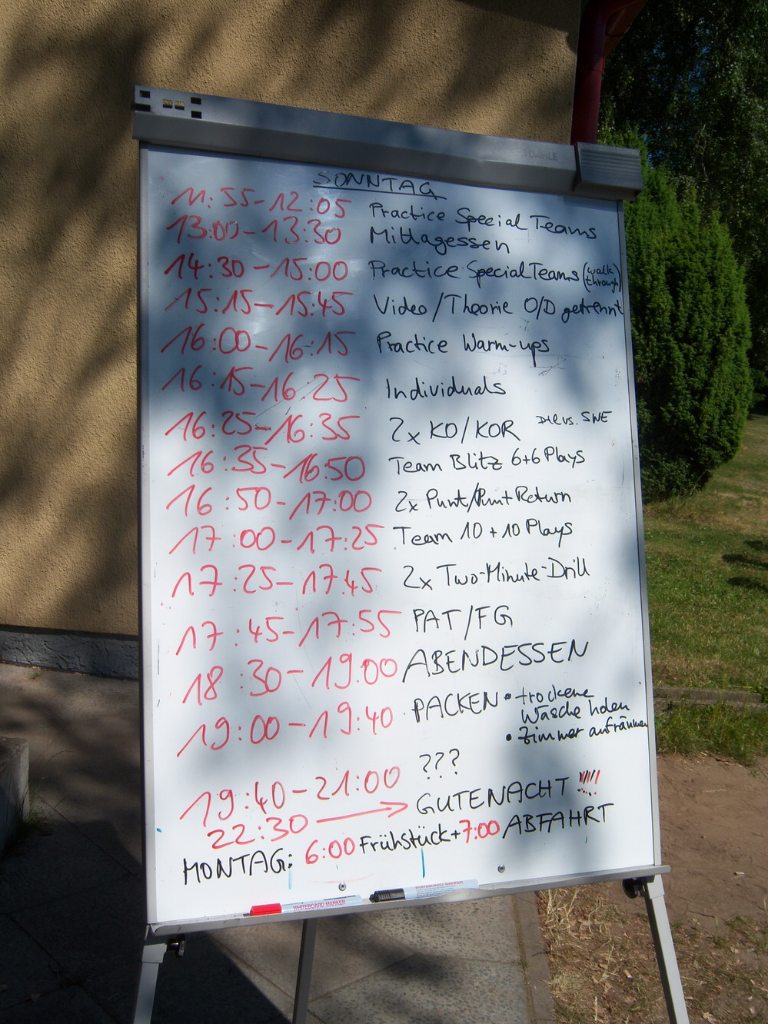 SONNTAG
11:55-12:05 Practice Special Teams
13:00-13:30 Mittagessen
14:30-15:00 Practice Special Teams (walk through)
15:15-15:45 Video/Theorie O/D getrennt
16:00-16:15 Practice Warm-ups
16:15-16:25 Individuals
16:25-16:35 2x KO/KOR vs. SWE
16:35-16:50 Team Blitz 6+6 Plays
16:50-17:00 2x Punt/Punt Return
17:00-17:25 Team 10+10 Plays
17:25-17:45 2x Two-Minute-Drill
17:45-17:55 PAT/FG
18:30-19:00 ABENDESSEN
19:00-19:40 PACKEN • trockene
Wäsche holen
• Zimmer aufräumen
19:40-21:00 ???
22:30 → GUTE NACHT !!!!
MONTAG: 6:00 Frühstück + 7:00 ABFAHRT
WHITEBOARD MARKER